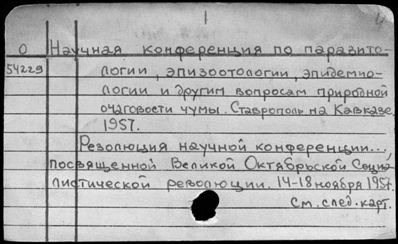 О Научная конференция по паразито-
54229 логии, эпизоотологии, эпидемио-
логии и другим вопросам природной
очаговости чумы. Ставрополь на Кавказе
1957.
Резолюция научной конференции...,
посвященной Великой Октябрьской Социа-
листической революции. 14-18 ноября 1957.
См. след. карт.